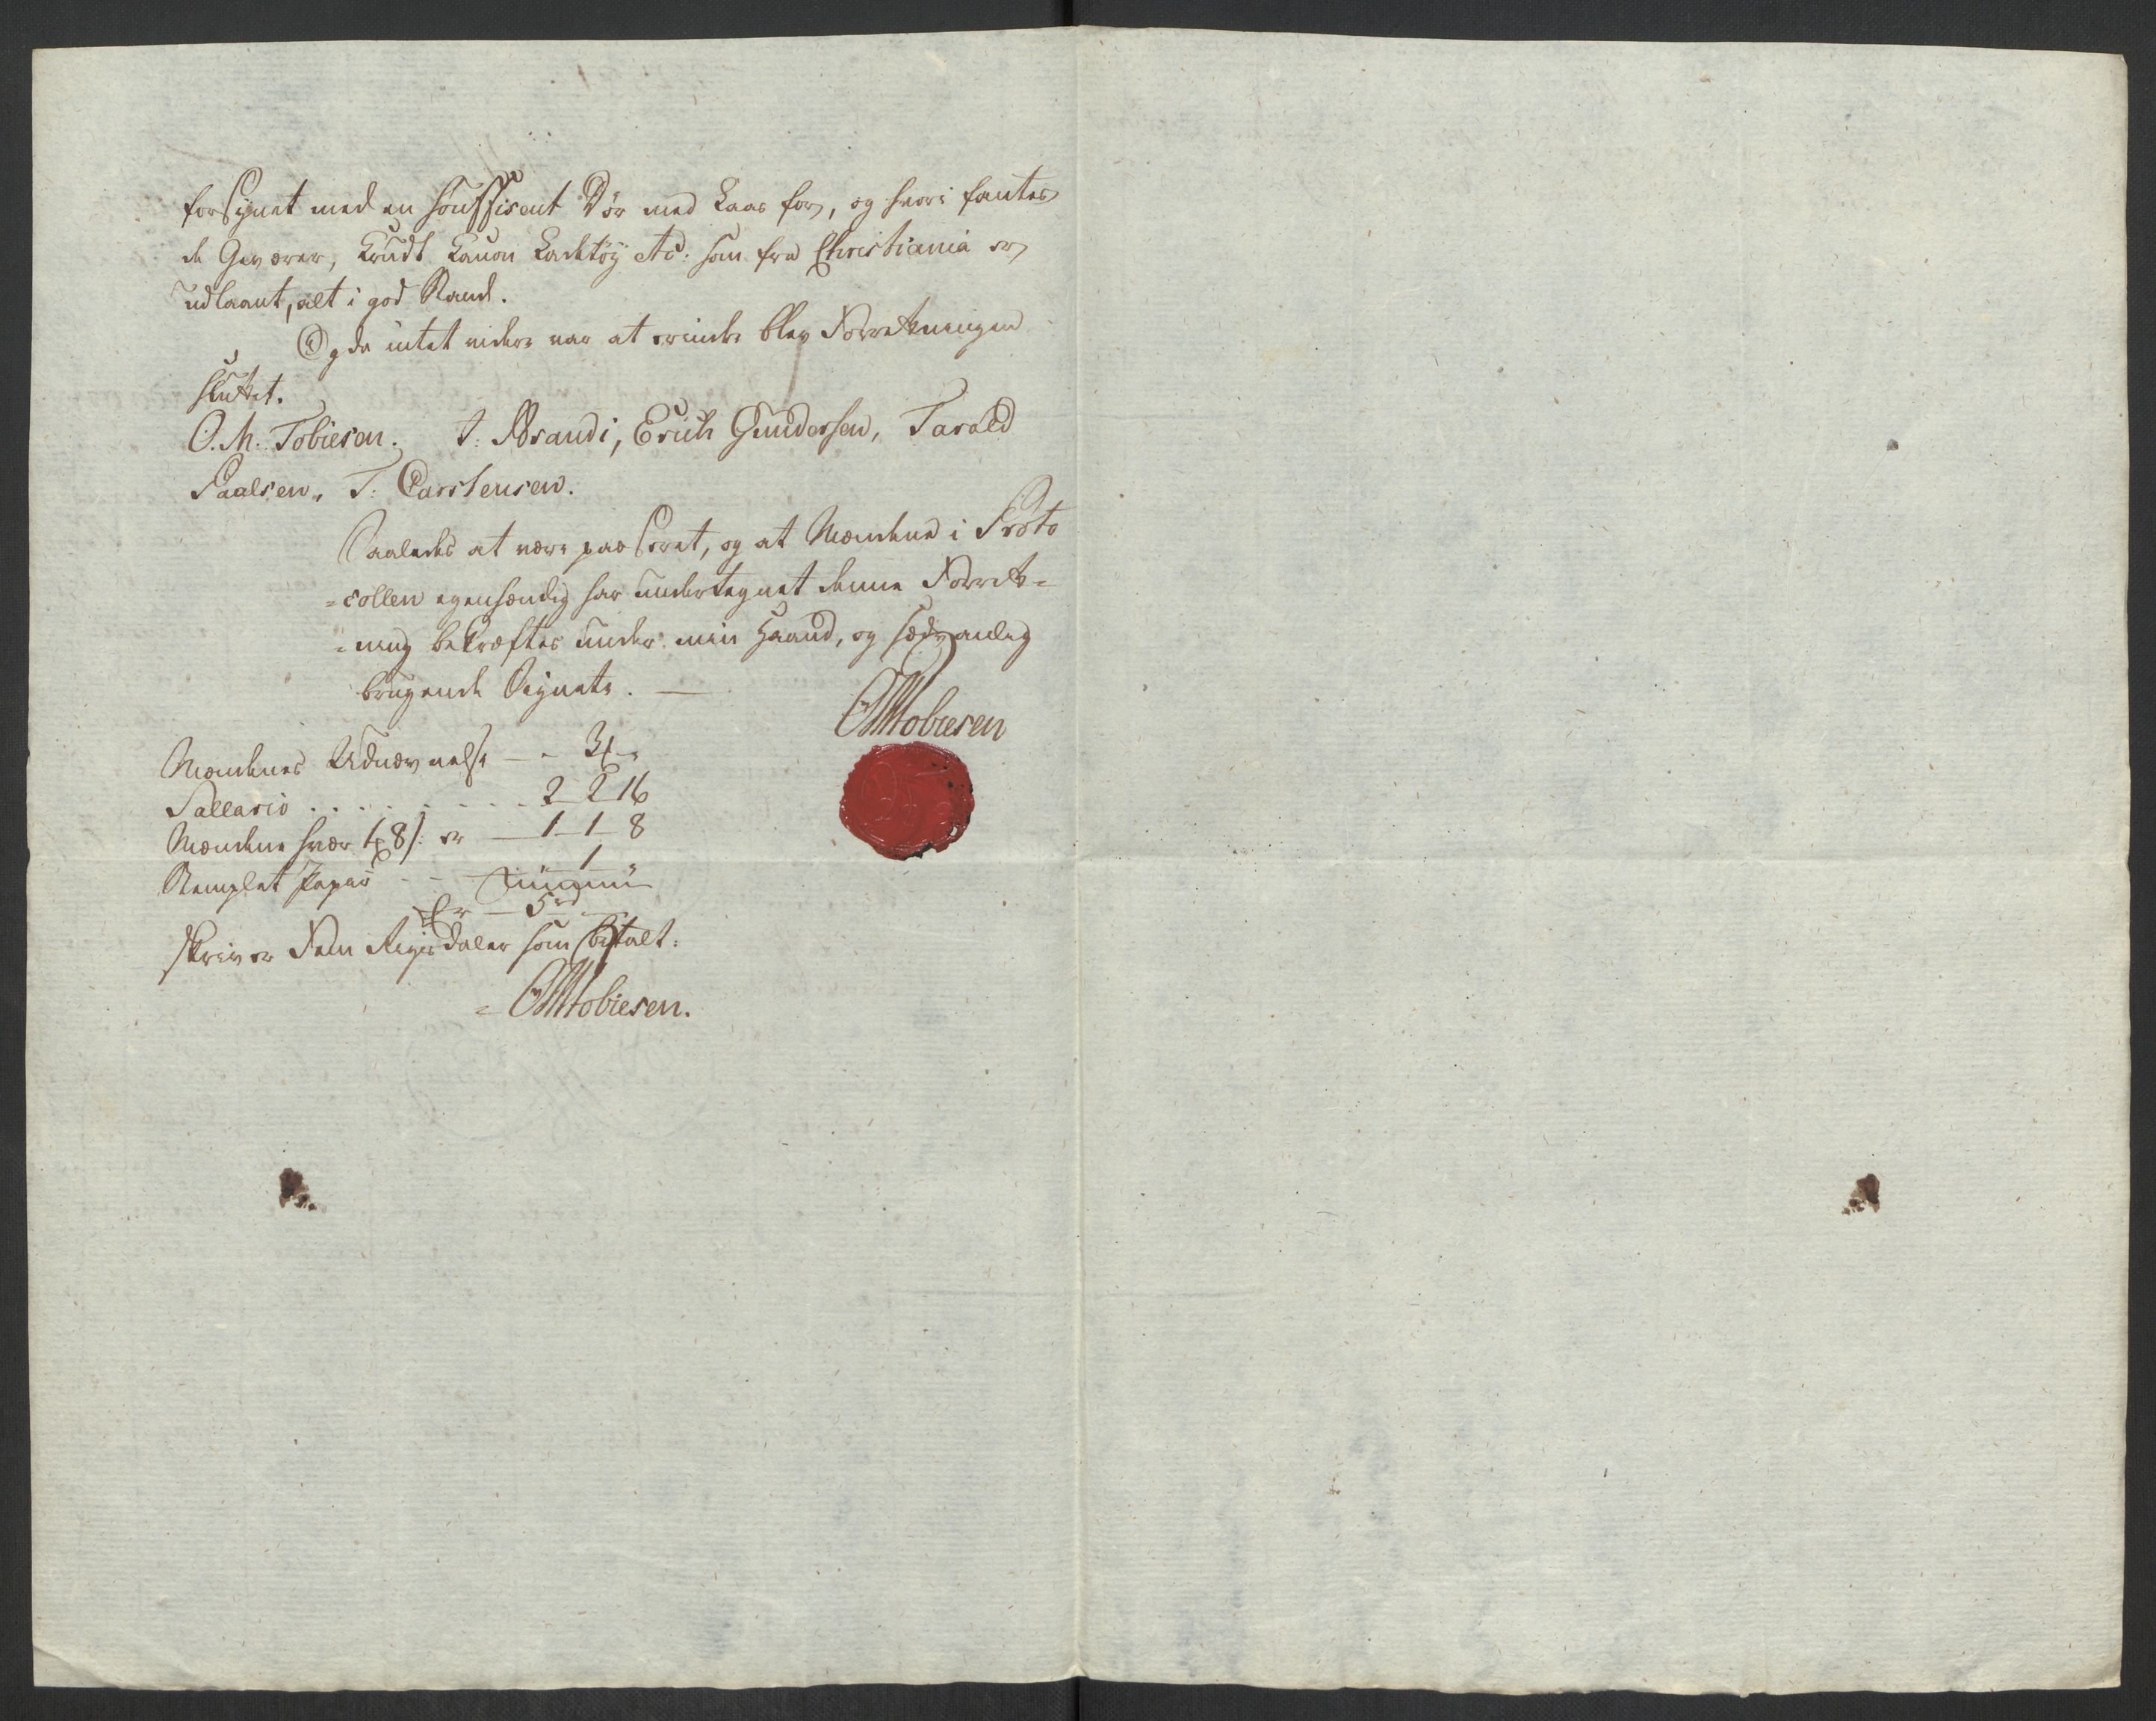 forsÿnet med en souffisent Dör med Laas for, og hvori fantes
de Geværer, Krudt Kanon Ladetöÿ etc: som fra Christiania er
udlaant, alt i god Stand.
Og da intet videre var at erindre blev Forretningen
sluttet.
O. M. Tobiesen. J: Brandt, Erich Gundersen, Tarald
Paalsen, T: Carstensen.
Saaledes at være passeret, og at Mændene i Proto
=collen egenhændig har undertegnet denne Forret=
=ning bekræftes under min Haand, og sædvanlig
brugende Signete. —
OMTobiesen
Mændenes Udnævnelse — - 3 -
Sallario . . . . . . . . . 2 - 2 - 16
Mændene hver 8/: er — 1 - 1 - 8
Stemplet Papiir - - 1
Er — 5 rd
skriver Fem Rigsdaler som betalt:
= OMTobiesen.